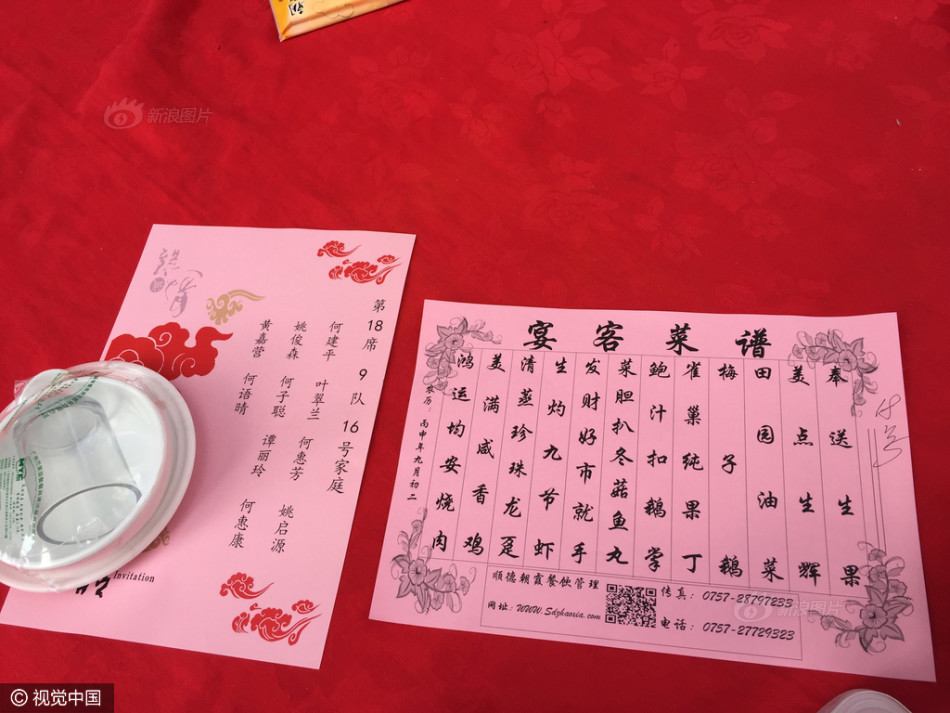 新浪图片
第18席 9队16号家庭
何建平 叶翠兰 何惠芳 姚启源
姚俊森 何子聪 谭丽玲 何惠康
黄嘉营 何语晴
Invitation
宴客菜谱
农历：丙申年九月初二
鸿运均安烧肉
美满咸香鸡
清蒸珍珠龙趸
生灼九节虾
发财好市就手
菜胆扒冬菇鱼九
鲍汁扣鹅掌
雀巢纯果丁
梅子鹅
田园油菜
美点生辉
奉送生果
顺德朝霞餐饮管理
网址：WWW.Sdzhaoxia.com
传真：0757-28797233
电话：0757-27729323
© 视觉中国